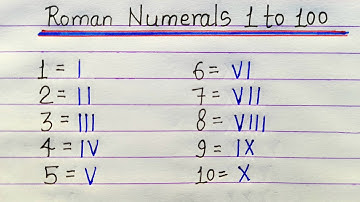 Roman Numerals 1 to 100
1 = I
2 = II
3 = III
4 = IV
5 = V
6 = VI
7 = VII
8 = VIII
9 = IX
10 = X